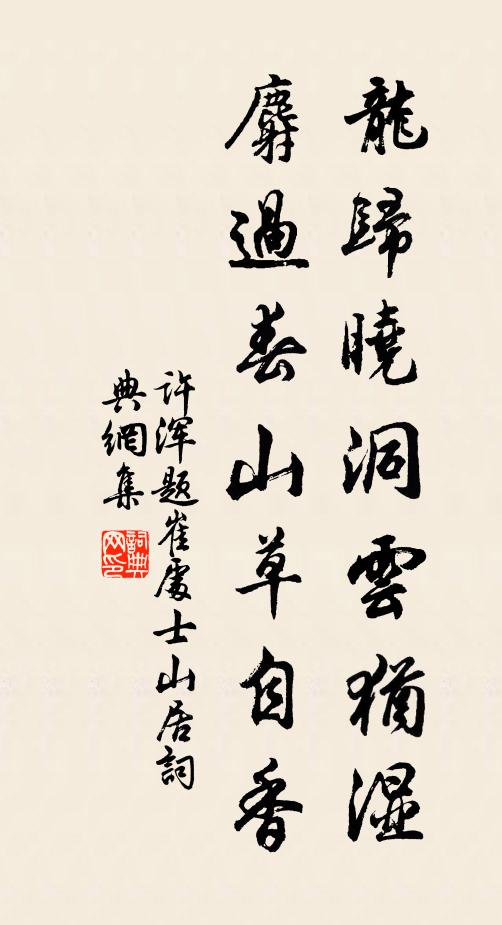 龍歸曉洞雲猶濕
麝過春山草自香
许浑题崔處士山居詞
典網集
詞典
网印